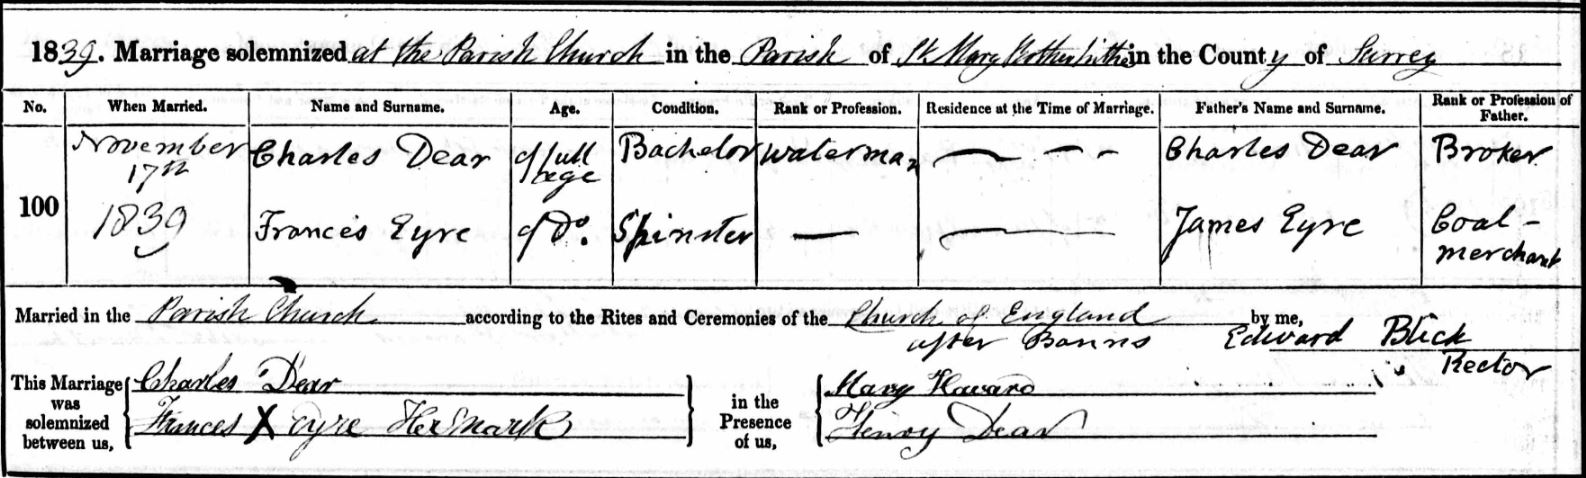 1839. Marriage solemnized at the Parish Church in the Parish of St Mary Rotherhithe in the County of Surrey
No. When Married. Name and Surname. Age. Condition. Rank or Profession. Residence at the Time of Marriage. Father's Name and Surname. Rank or Profession of Father.
100 November 17th 1839 Charles Dear of full age Bachelor Waterman — — - Charles Dear Broker
Frances Eyre of Do. Spinster — — James Eyre Coal-merchant
Married in the Parish Church according to the Rites and Ceremonies of the Church of England by me,
after Banns Edward Blick
Rector
This Marriage was solemnized between us, Charles Dear
Frances X Eyre Her Mark
in the Presence of us, Mary Havard
Henry Dear